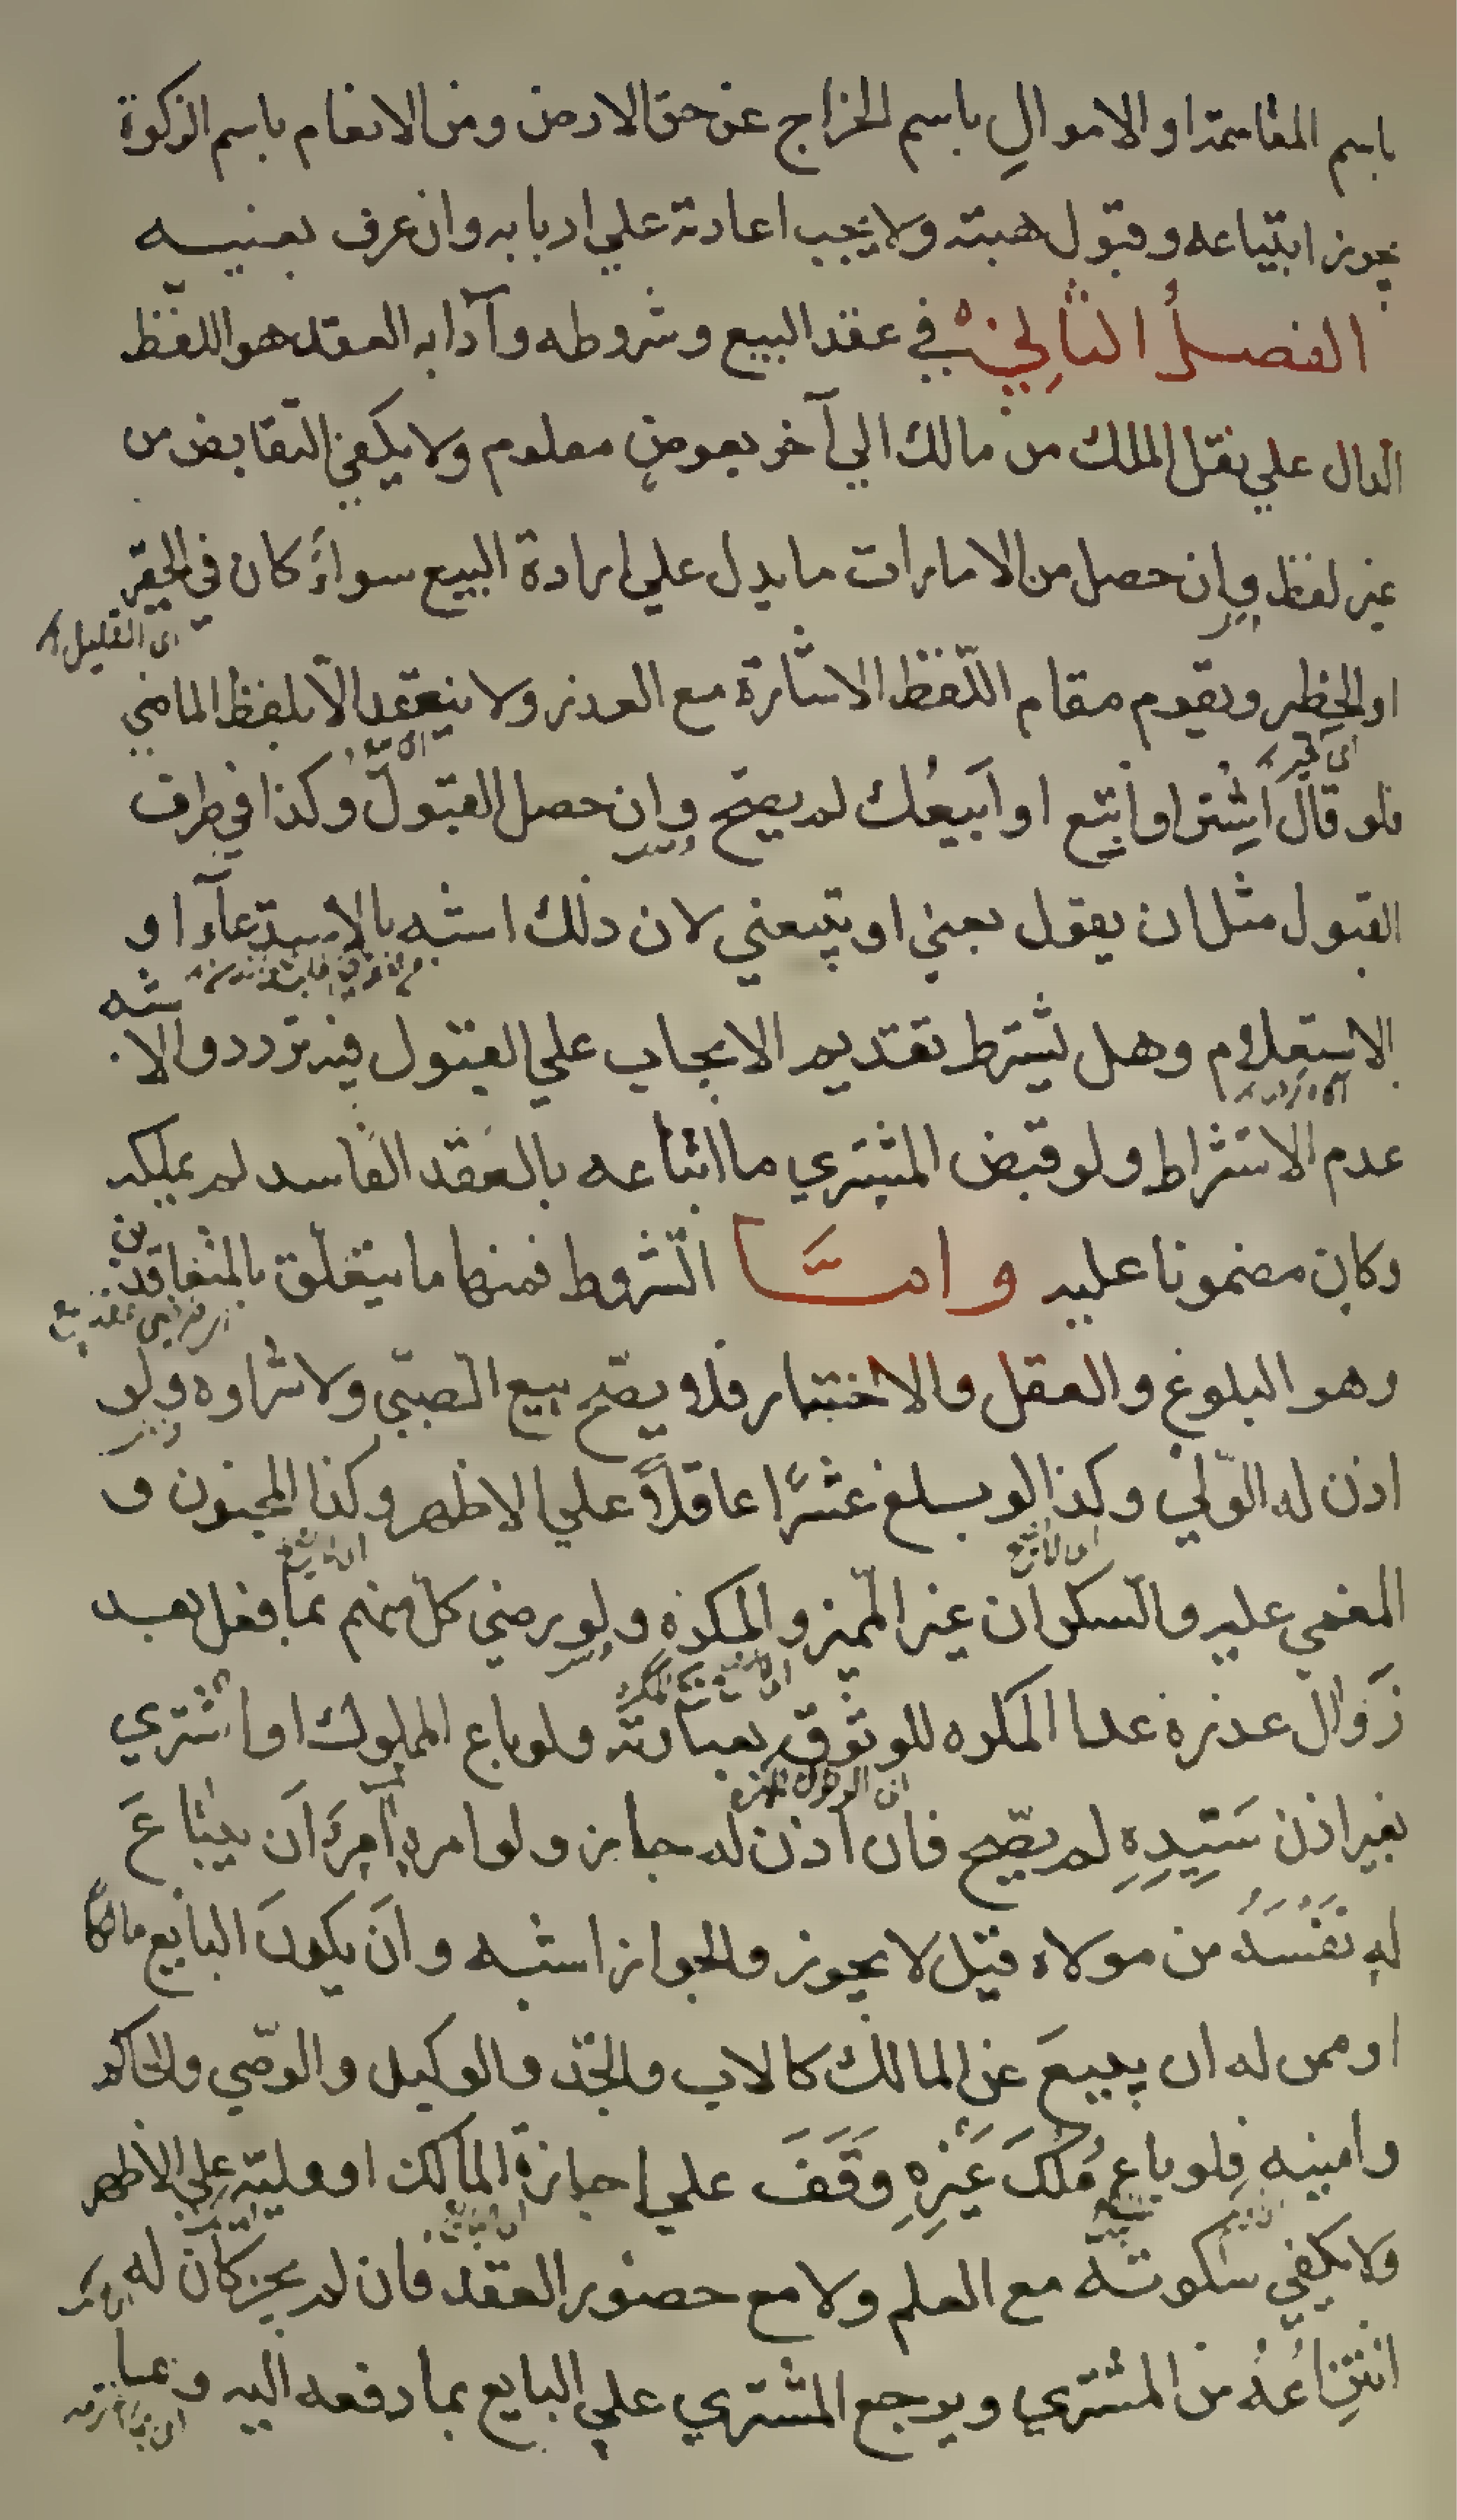 باسم المقاسمة او الاموال باسم الخراج عن حق الارض ومن الانعام باسم الزكوة
يجوز ابتياعه وقبول هبته ولا يجب اعادته علي اربابه وان عرف بعينيه
الفصل الثاني في عقد البيع وشروطه وآدابه العقد هو اللفظ
الدال علي نقل الملك من مالك الي آخر بعوض معلوم ولا يكفي التقابض من
غير لفظ وإن حصل من الامارات ما يدل علي ارادة البيع سواءً كان في الحقير
اى القليل
او الخطر ويقوم مقام اللّفظ الاشارة مع العذر ولا ينعقد الّا بلفظ الماضي
فلو قال اشتر او ابتع او ابيعُك لم يصحّ وإن حصل القبول وكذا في طرف
القبول مثل ان يقول بعني او تبيعني لان ذلك اشبه بالاستدعآء او
الاستعلام وهل يشترط تقديم الايجاب علي القبول فيه تردد والاشبه
عدم الاشتراط ولو قبض المشتري ما ابتاعه بالعقد الفاسد لم يملكه
وكان مضمونا عليه وامّا الشّروط فمنها ما يتعلّق بالمتعاقدين
وهو البلوغ والعقل والاختيار فلا يصّح بيع الصبّي ولا شراوه ولو
اذن له الوّلي وكذا لو بلغ عشرًا عاقلاً علي الاظهر وكذا المجنون و
المغمي عليه والسكران غير المّميز والمكره ولو رضي كلّ منهم بما فعل بعد
زَوال عذره عدا المكره للوثوق بعبارته ولو باع المملوك او اشتري
بغير اذن سَيّدِهِ لم يصّح فان اذن له جاز ولو امره آمِرٌ اَن يبتاعَ
له نَفْسَهُ من مولاه قيل لا يجوز والجواز اشبه واَن يكونَ البايع مالكاً
او ممن له ان يبيعَ عن المالك كالاب والجّد والوكيل والوصّي والحاكم
وامينه فلو باع مُلكَ غَيْرِهِ وَقَفَ علي إجازة المالك او وليّه علي الاظهر
ولا يكفي سكوته مع العلم ولا مع حضور العقد فان لم يجز كان له
انتزاعُهُ من المشتري ويرجع المشتري علي البايع بما دفعه اليه وما